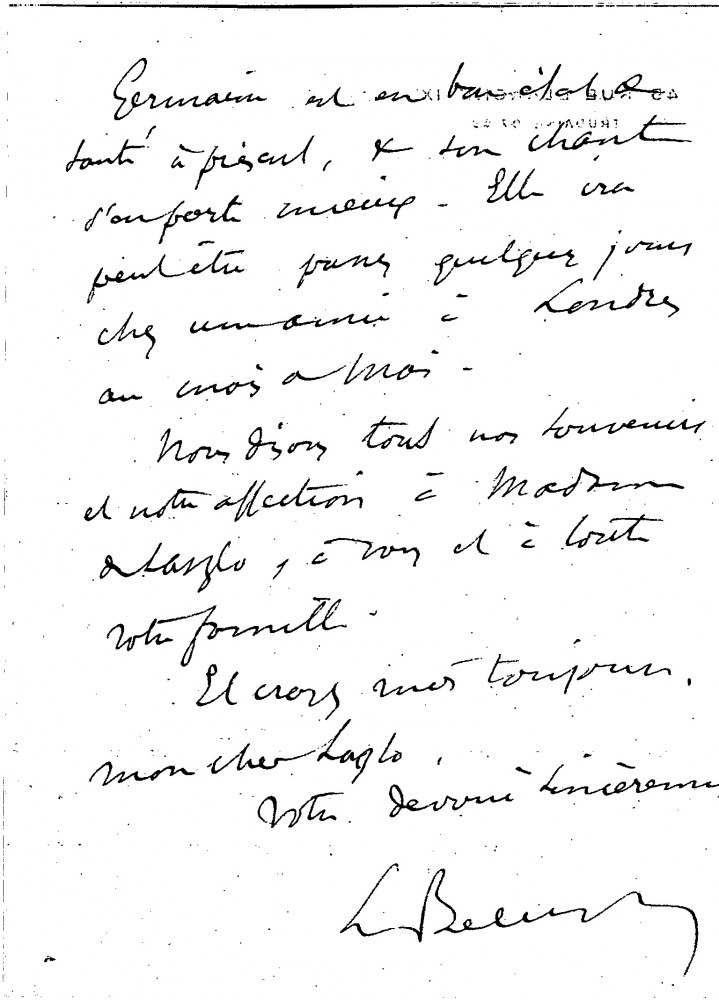 Germaine est en bon état de
santé à présent, & son chant
s'en porte mieux - Elle ira
peut être passer quelques jours
chez une amie à Londres
au mois de Mai -
Nous disons tous nos souvenirs
et notre affection à Madame
de Laszlo, à vous et à toute
votre famille.
Et croyez moi toujours,
mon cher Laszlo,
votre dévoué sincèrement
L